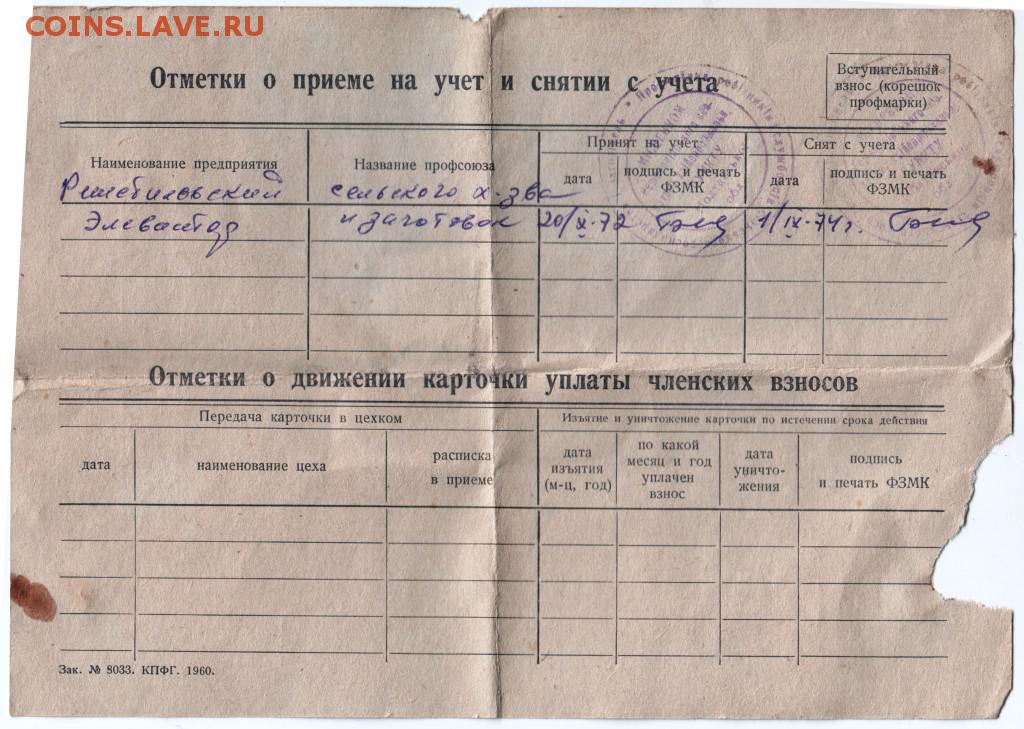 COINS.LAVE.RU
Отметки о приеме на учет и снятии с учета
Вступительный
взнос (корешок
профмарки)
Наименование предприятия
Название профсоюза
Принят на учет
Снят с учета
дата
подпись и печать
ФЗМК
дата
подпись и печать
ФЗМК
сельского х-зва
Элеватор
и заготовок
20/X-72
1/IX-74г.
Отметки о движении карточки уплаты членских взносов
Передача карточки в цехком
Изъятие и уничтожение карточки по истечении срока действия
дата
наименование цеха
расписка
в приеме
дата
изъятия
(м-ц, год)
по какой
месяц и год
уплачен
взнос
дата
уничто-
жения
подпись
и печать ФЗМК
Зак. № 8033. КПФГ. 1960.